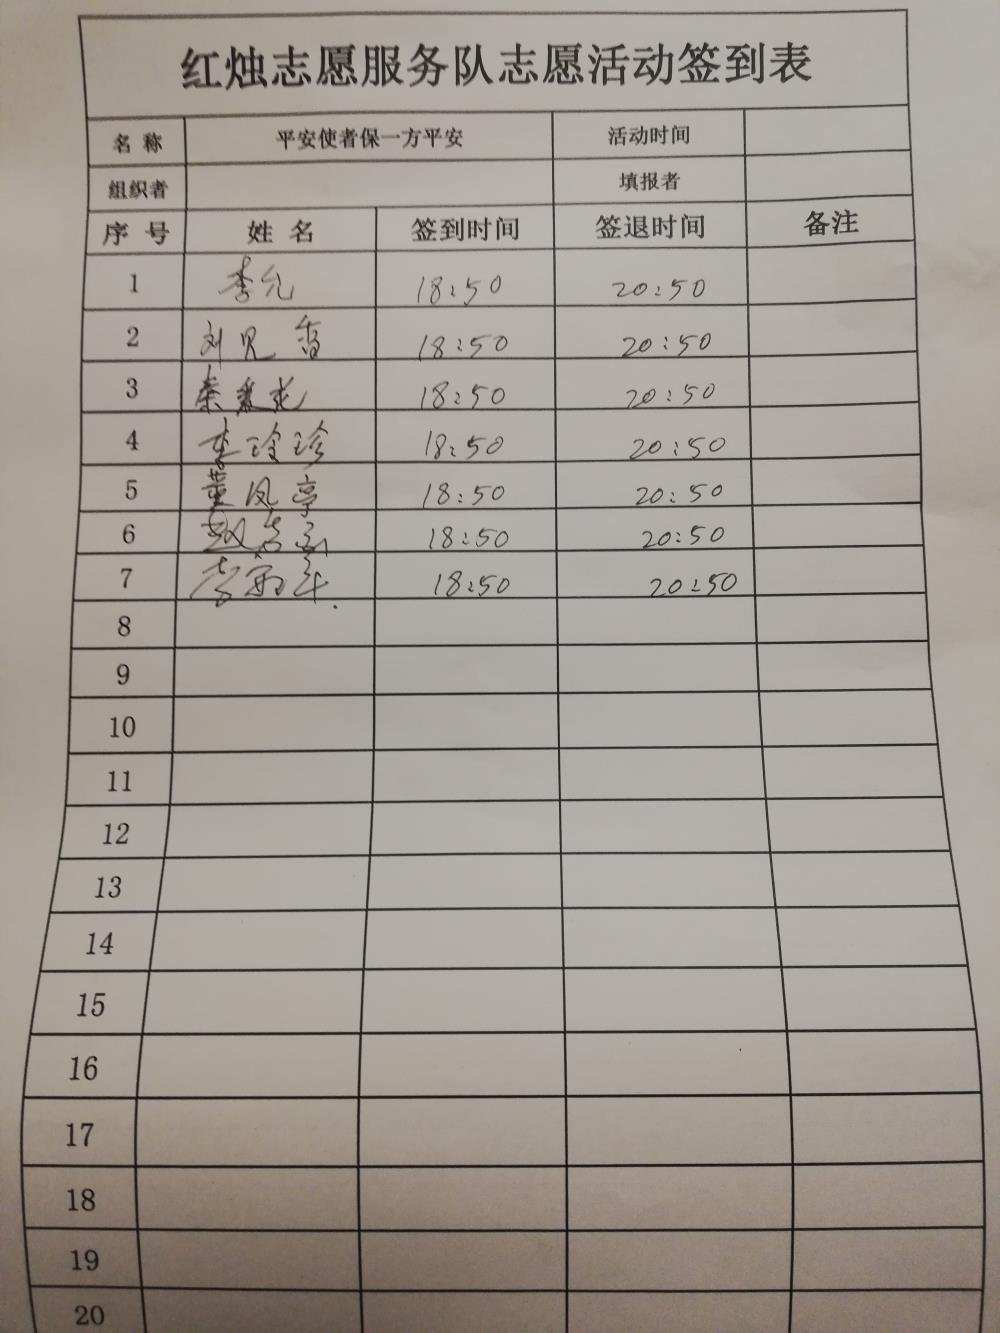 红烛志愿服务队志愿活动签到表
名 称 平安使者保一方平安 活动时间
组织者 填报者
序 号 姓 名 签到时间 签退时间 备注
1 李允 18:50 20:50
2 刘见香 18:50 20:50
3 秦 18:50 20:50
4 李玲珍 18:50 20:50
5 董凤亭 18:50 20:50
6 赵 18:50 20:50
7 李 18:50 20:50
8
9
10
11
12
13
14
15
16
17
18
19
20